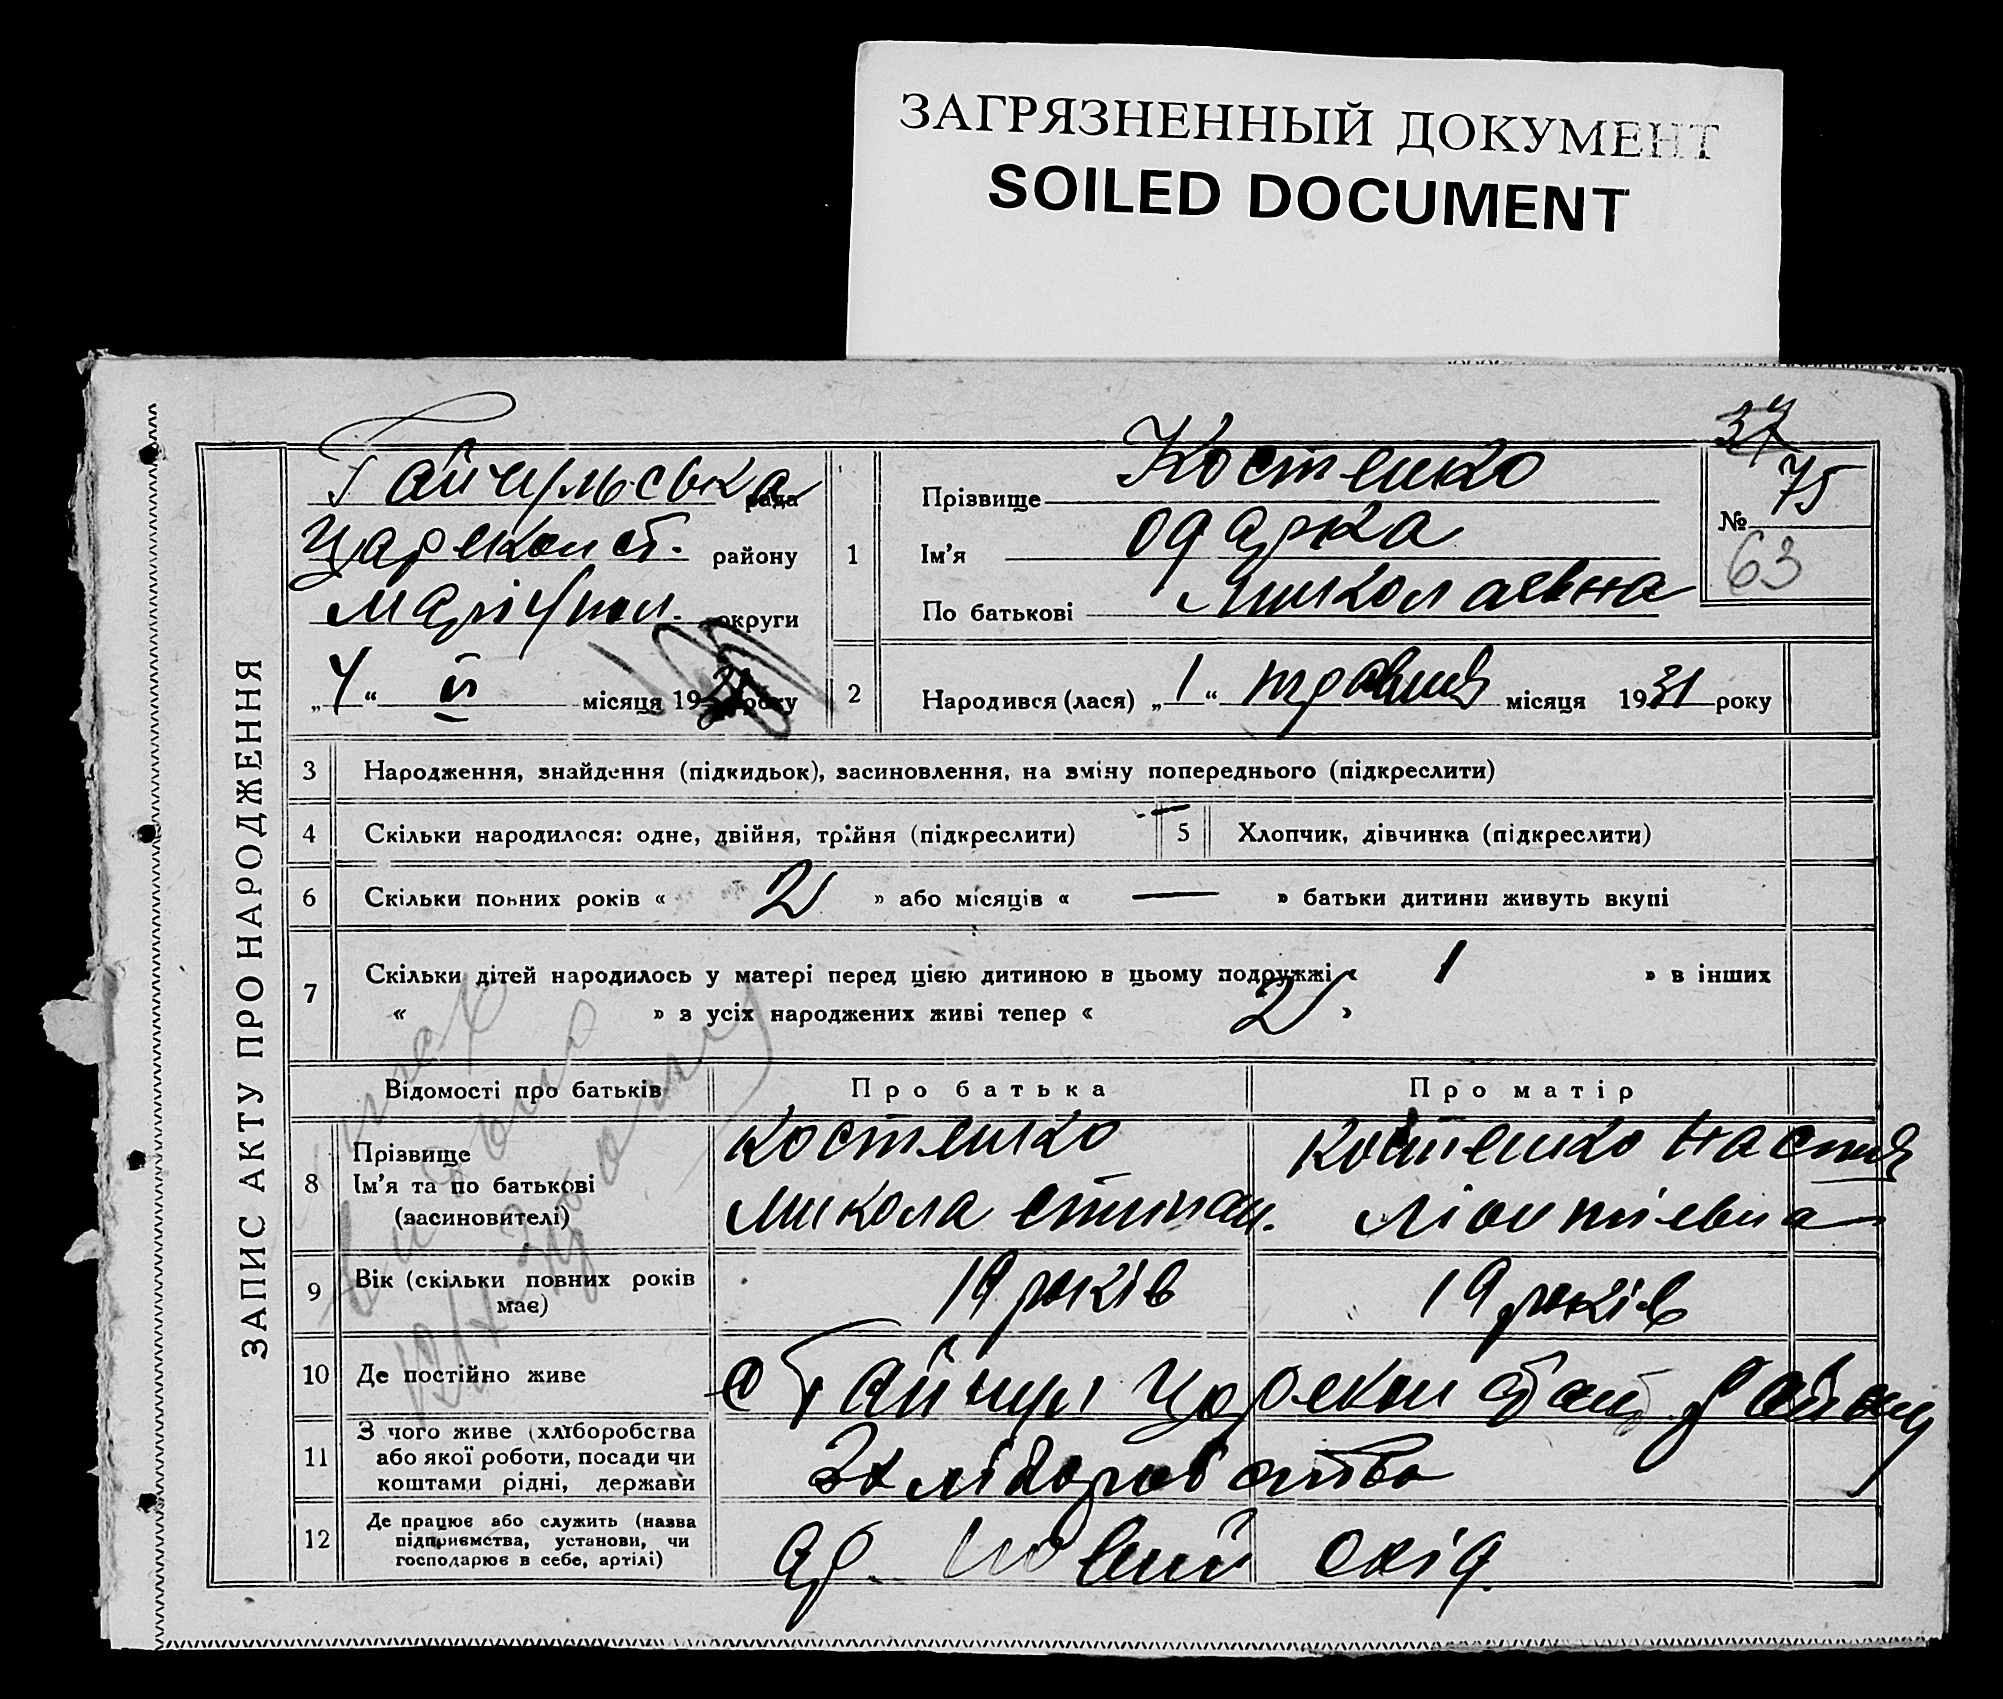 ЗАГРЯЗНЕННЫЙ ДОКУМЕНТ
SOILED DOCUMENT
ЗАПИС АКТУ ПРО НАРОДЖЕННЯ
Гайчульська рада
Цареконст. району
Маріупол. округи
„4“ V місяця 1931 року
37
№ 75
63
1 Прізвище Костенко
Ім'я Одарка
По батькові Миколаевна
2 Народився (лася) „1“ травня місяця 1931 року
3 Народження, знайдення (підкидьок), засиновлення, на зміну попереднього (підкреслити)
4 Скільки народилося: одне, двійня, трійня (підкреслити) 5 Хлопчик, дівчинка (підкреслити)
6 Скільки повних років « 2 » або місяців « — » батьки дитини живуть вкупі
7 Скільки дітей народилось у матері перед цією дитиною в цьому подружжі « 1 » в інших
« » з усіх народжених живі тепер « 2 »
Відомості про батьків Про батька Про матір
8 Прізвище
Ім'я та по батькові
(засиновителі)
Костенко
Микола Степан.
Костенко Настя
Ліонтіевна
9 Вік (скільки повних років має) 19 років 19 років
10 Де постійно живе с Гайчул Цареконстант району
11 З чого живе (хліборобства
або якої роботи, посади чи
коштами рідні, держави
Хліборобство
12 Де працює або служить (назва
підприємства, установи, чи
господарює в себе, артілі)
ар. Новий схід